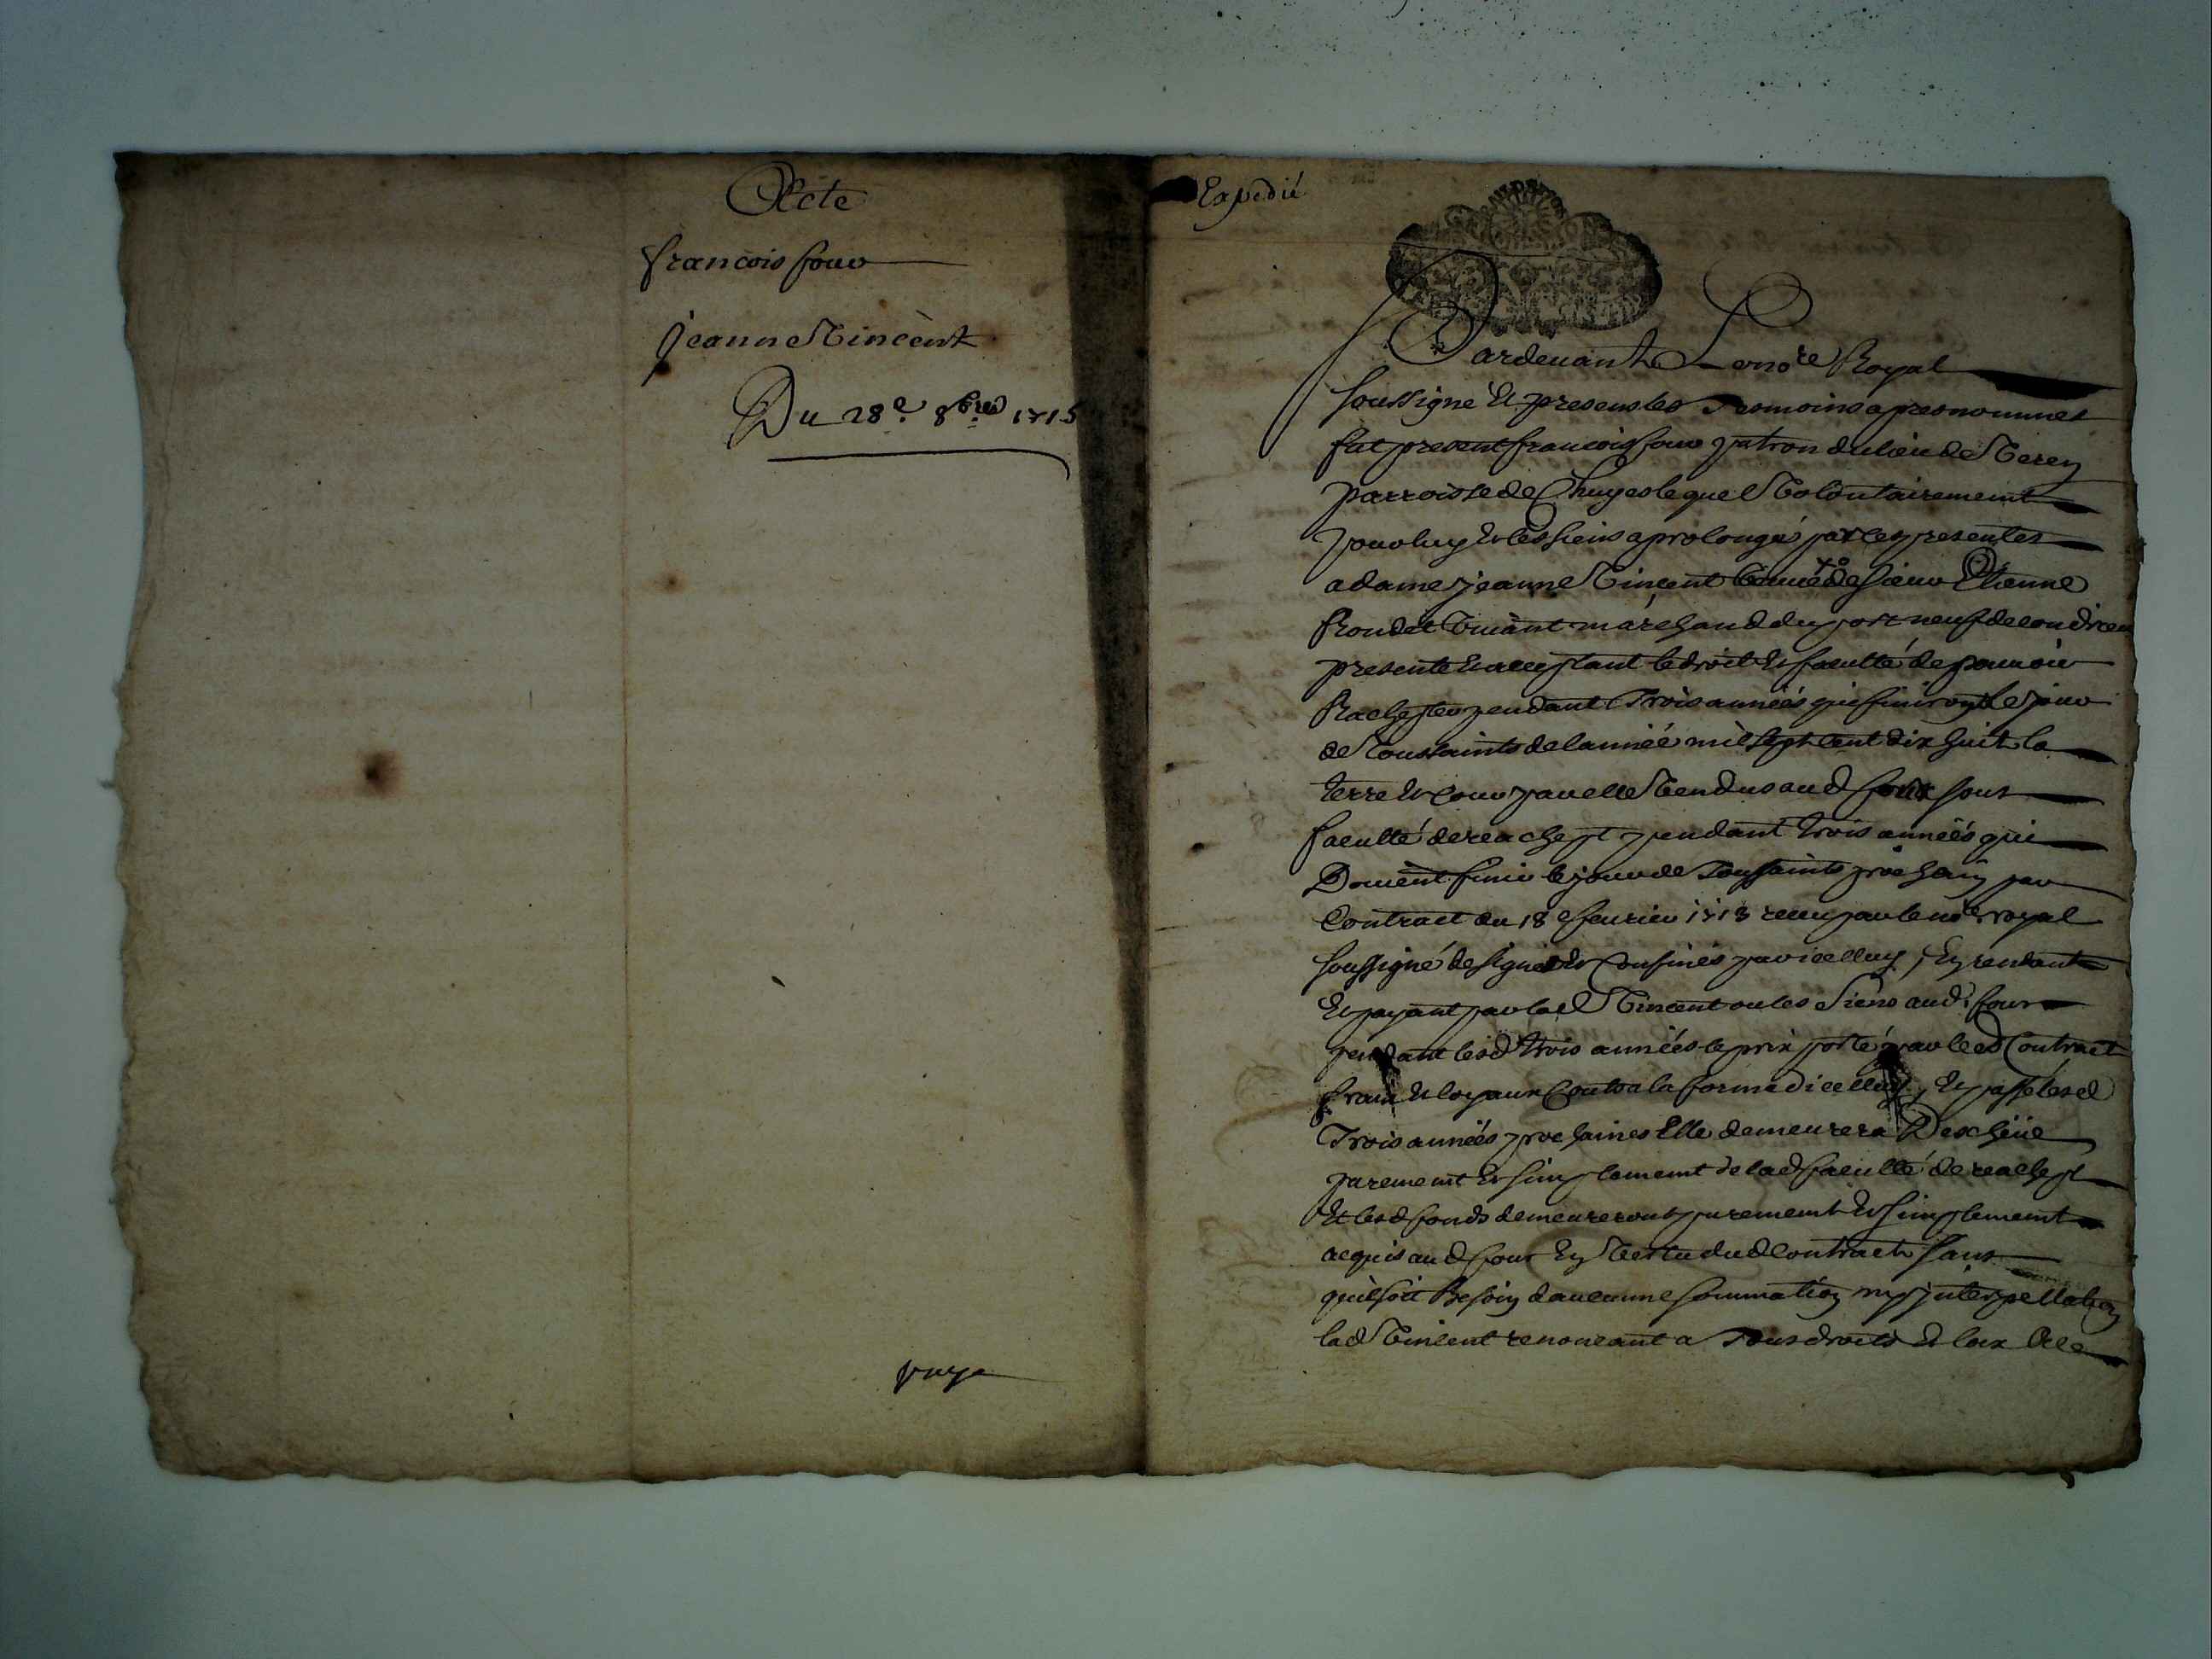 Acte
françois four
jeanne Vincent
Du 28e. 8bre 1715
paye
Expedié
Pardevant Le nore Royal
soussigné Et presens les Tesmoins apres nommes
fut present françois four patron du lieu de Verey
parroisse de Chuyes lequel Volontairement
pour luy Et les siens a prolongés par les presentes
a dame jeanne Vincent de sieur Etienne
Rondet vivant marchand du port neuf de condrieu
presente Et acceptant le droit Et faculté de pouvoir
Rachepter pendant Trois années qui finiront le jour
de Toussaints de lannéé mil sept cent dix huit la
terre Et cour par elle Vendus aud four sous
faculté dereachept pendant trois annéés qui
Doivent finir le jour de Toussaints prochain par
Contract du 18e feurier 1713 receu par le nore royal
soussigné designés Et Confinés par icelluy, En rendant
Et payant par lad Vincent ou les siens aud. four
pendant lesd trois annéés le prix porté par led Contract
frais Et loyaux Couts a la forme dicelluy, Et passé lesd
Trois annéés prochaines Elle demeurera Descheüe
purement Et simplement de lad faculté de reachept
Et lesd fonds demeureront purement Et simplement
acquis aud four En Vertu dud Contract sans
quil soit Besoin daucunne sommation ny jnterpellation
lad Vincent renoncant a Tous droits Et loix A ce